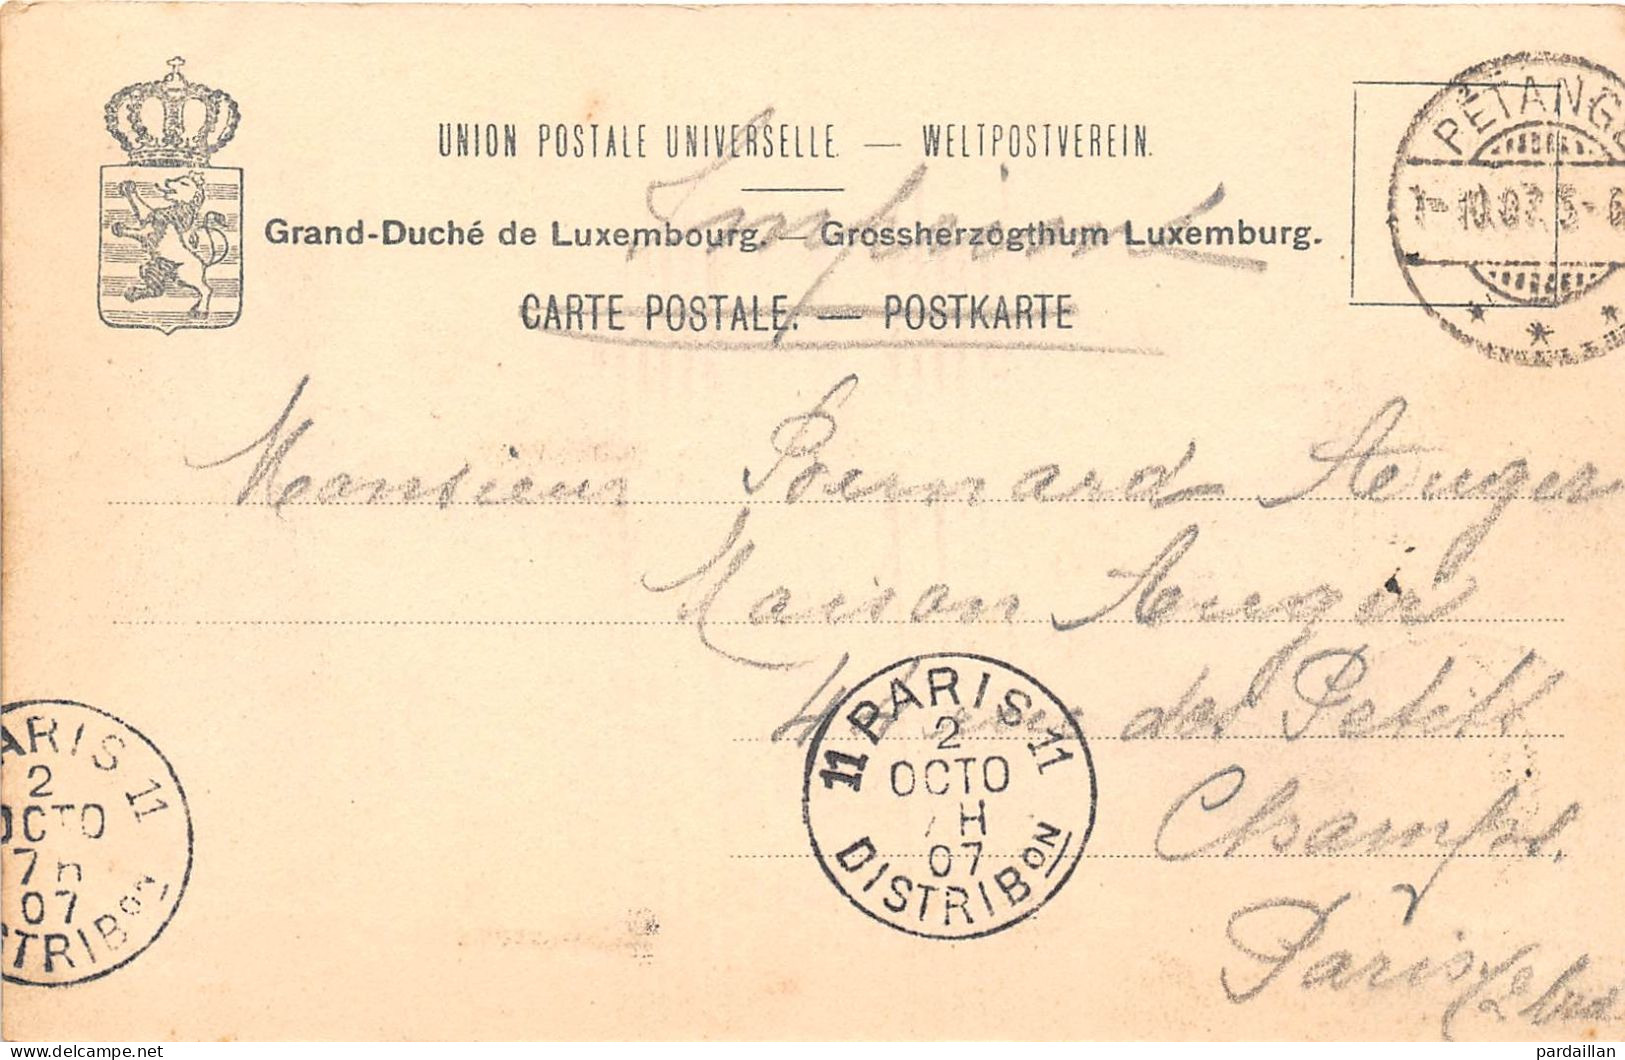 UNION POSTALE UNIVERSELLE. — WELTPOSTVEREIN.
Imprimé
Grand-Duché de Luxembourg. — Grossherzogthum Luxemburg.
CARTE POSTALE. — POSTKARTE
PÉTANGE
1-10.07.5-6
Monsieur Bernard Auger
Maison Auger
4 rue des Petits
Champs.
Paris
PARIS 11
2
OCTO
7H
07
DISTRIBON
11 PARIS 11
2
OCTO
7H
07
DISTRIBON
delcampe.net
pardaillan